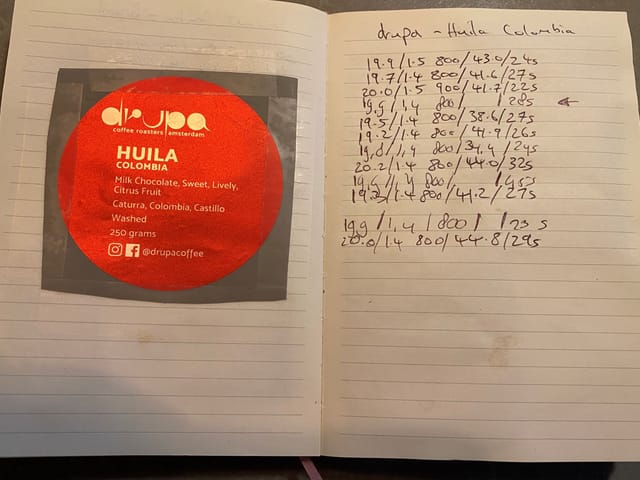 drupa
coffee roasters amsterdam
HUILA
COLOMBIA
Milk Chocolate, Sweet, Lively,
Citrus Fruit
Caturra, Colombia, Castillo
Washed
250 grams
@drupacoffee
drupa - Huila Colombia
19.9/1.5 800/43.0/24s
19.7/1.4 800/41.6/27s
20.0/1.5 900/41.7/22s
19,9/1,4 800/ /28s
19.5/1.4 800/38.6/27s
19.2/1.4 800/41.9/26s
/1,4 800/34,4/24s
20.2/1.4 800/44.0/32s
/1,4 800/
1.4 800/41.2/27s
19,9/1,4/800/ /23 s
20.0/1.4 800/44.8/29s